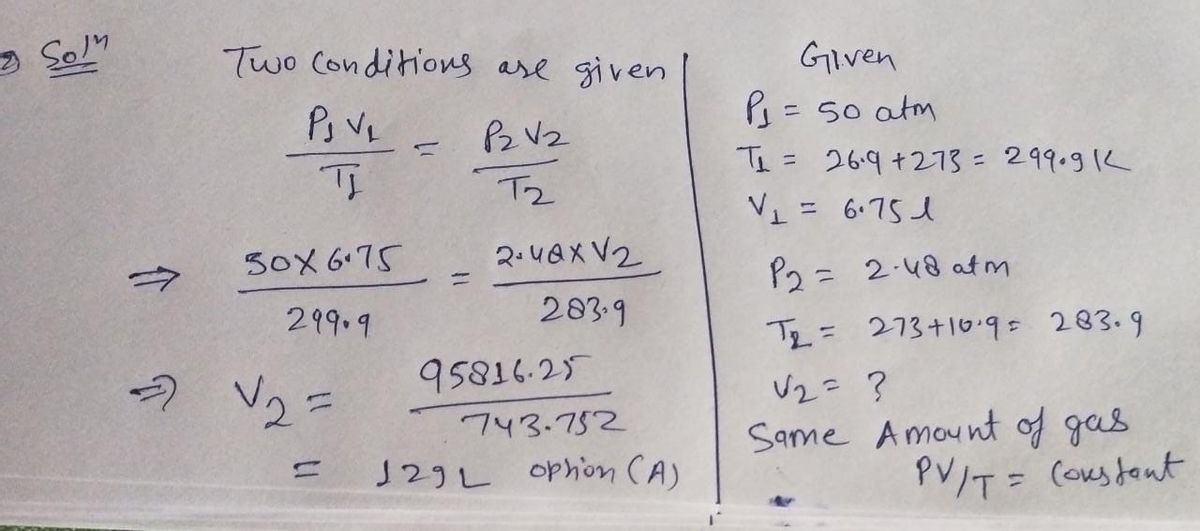 2) Solⁿ
Two Conditions are given
P₁V₁/T₁ = P₂V₂/T₂
⇒ 50X6.75/299.9 = 2.48XV₂/283.9
⇒ V₂ = 95816.25/743.752
= 129L option (A)
Given
P₁ = 50 atm
T₁ = 26.9 + 273 = 299.9 K
V₁ = 6.75 l
P₂ = 2.48 atm
T₂ = 273+10.9 = 283.9
V₂ = ?
Same Amount of gas
PV/T = Constant